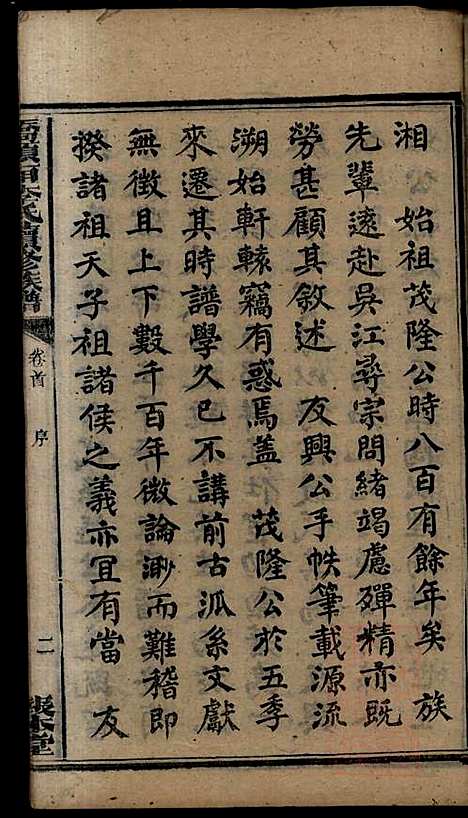 湘　始祖茂隆公時八百有餘年矣　族
先輩遠赴吳江尋宗問緒竭慮殫精亦既
勞甚顧其敘述　友興公手帙筆載源流
溯始軒轅竊有惑焉蓋　茂隆公於五季
來遷其時譜學久已不講前古泒系文獻
無徵且上下數千百年微論渺而難稽即
揆諸祖天子祖諸侯之義亦宜有當　友
氏續修族譜
卷首
序
二